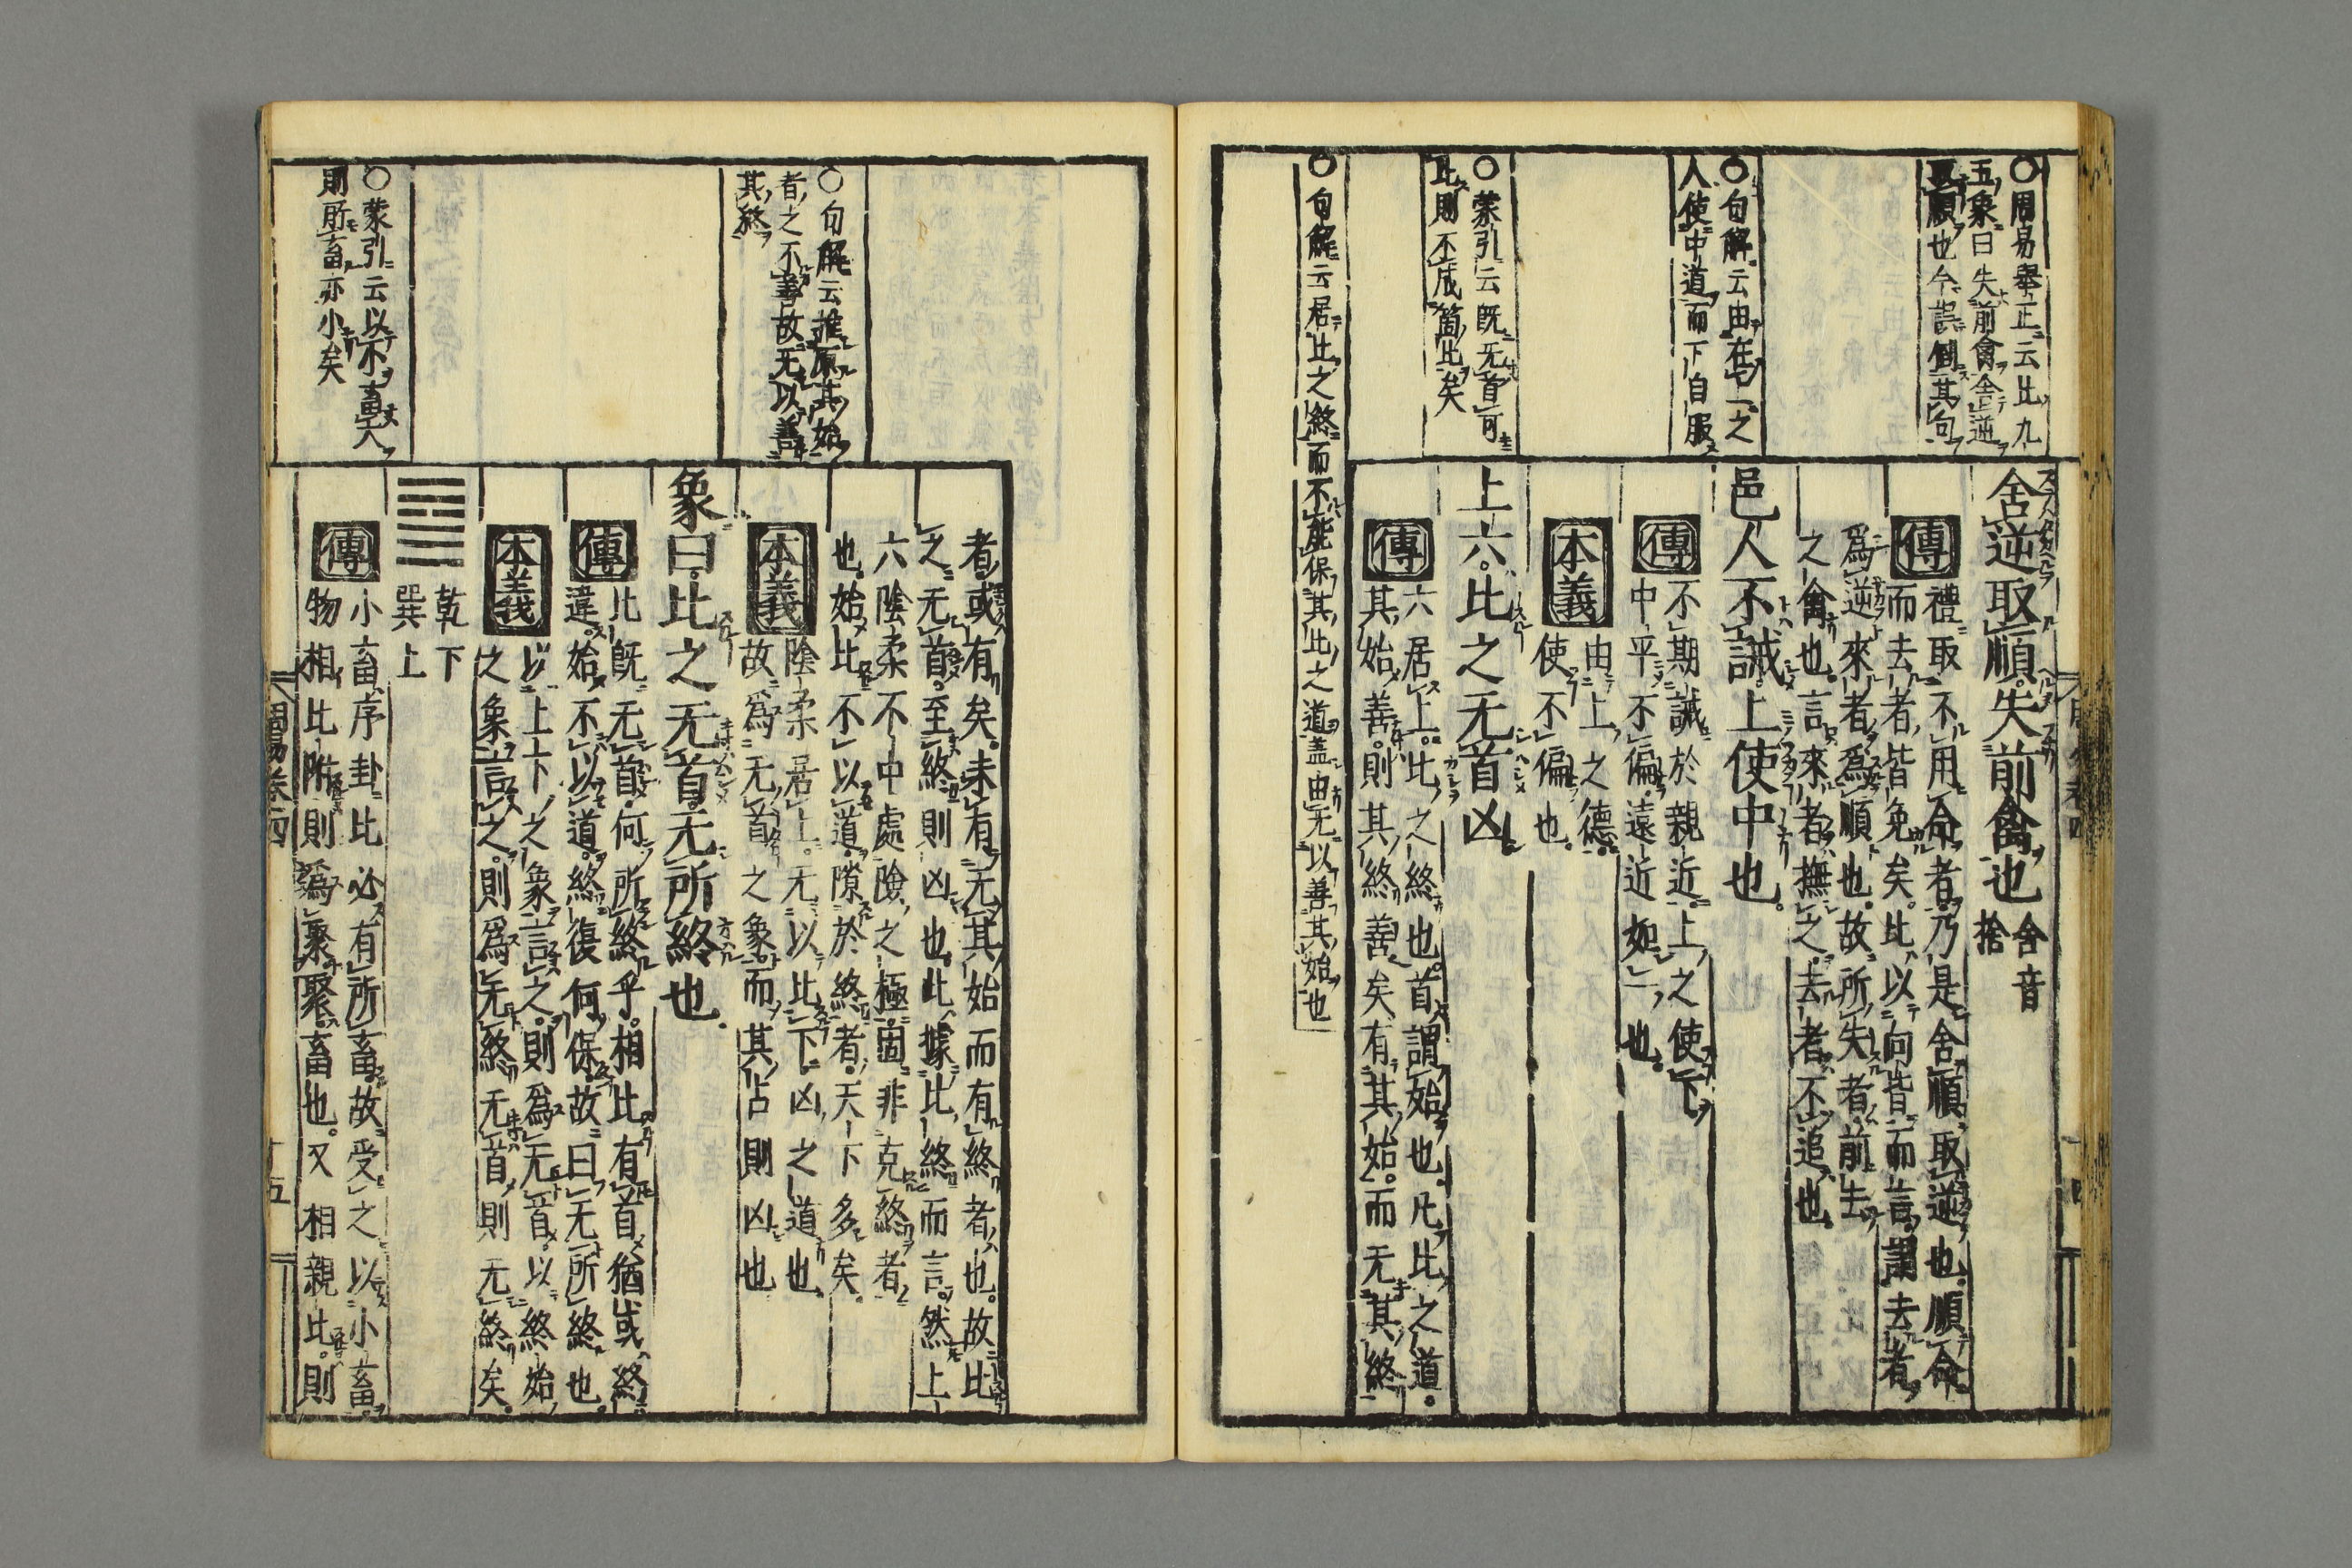 ○周易擧正云比九
五象曰失前禽舎逆
取順也今誤倒其句
○句解云由在上之
人使中道而下自服
○蒙引云既无首可
比則不成箇比矣
○句解云居比之終而不能保其比之道盖由无以善其始也
舍逆取順失前禽也舍音
捨
傳禮取不用命者乃是舍順取逆也順命
而去者皆免矣比以向背而言謂去者
爲逆來者爲順也故所失者前去
之禽也言來者撫之去者不追也
邑人不誡上使中也
傳不期誡於親近上之使下
中平不偏遠近如一也
本義由上之德
使不偏也
上六比之无首凶
傳六居上比之終也首謂始也凡比之道
其始善則其終善矣有其始而无其終
者或有矣未有无其始而有終者也故比
之无首至終則凶也此據比終而言然上
六陰柔不中處險之極固非克終者
也始比不以道隙於終者天下多矣
本義陰柔居上无以比下凶之道也
故爲无首之象而其占則凶也
象曰比之无首无所終也
傳比既无首何所終乎相比有首猶或終
違始不以道終復何保故曰无所終也
本義以上下之象言之則爲无首以終始
之象言之則爲无終无首則无終矣
乾下
巽上
傳小畜序卦比必有所畜故受之以小畜
物相比附則爲聚聚畜也又相親比則
○句解云推原其始
者之不善故无以善
其終
○蒙引云以小畜大
則所畜亦小矣
周易卷四
十五